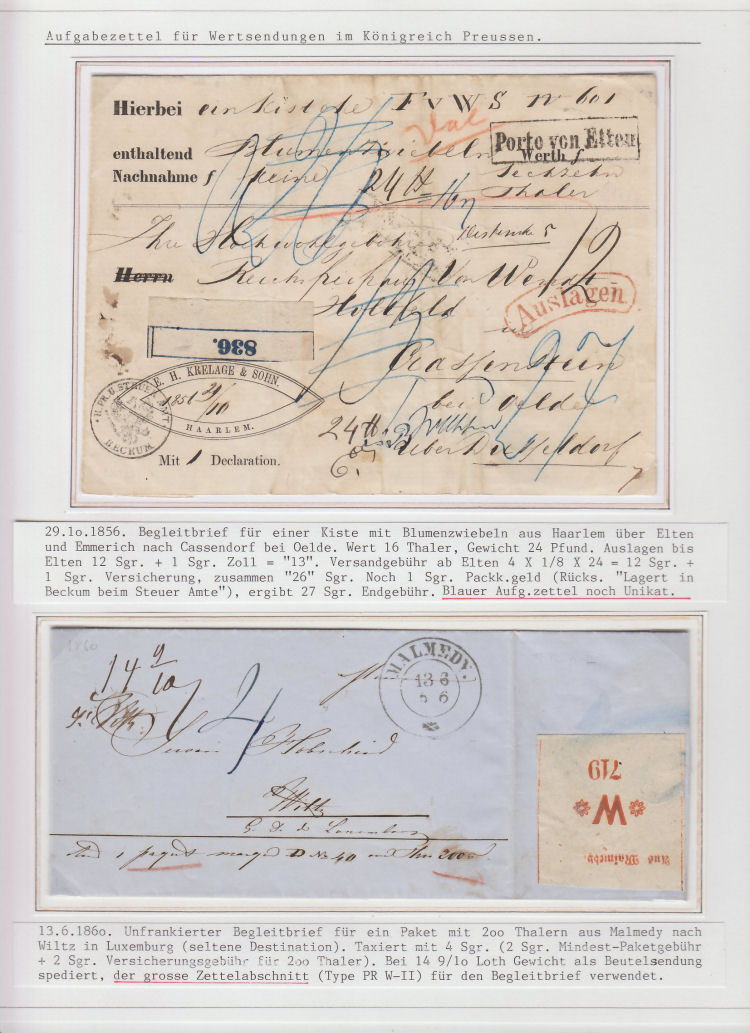 Aufgabezettel für Wertsendungen im Königreich Preussen.
Hierbei ein Kistche F v W S N 601
Val
Porto von Elten
enthaltend Blumenzwiebeln Werth f Sechzehn
Nachnahme f keine 24 ℔ Thaler
Ihro Hochwohlgeboren
Herrn
Holtfeld
Auslagen
836.
Crassenstein
bei Oelde
E. H. KRELAGE & SOHN.
HAARLEM.
BECKUM
24 ℔
über Düsseldorf
Mit 1 Declaration.
29.1o.1856. Begleitbrief für einer Kiste mit Blumenzwiebeln aus Haarlem über Elten
und Emmerich nach Cassendorf bei Oelde. Wert 16 Thaler, Gewicht 24 Pfund. Auslagen bis
Elten 12 Sgr. + 1 Sgr. Zoll = "13". Versandgebühr ab Elten 4 X 1/8 X 24 = 12 Sgr. +
1 Sgr. Versicherung, zusammen "26" Sgr. Noch 1 Sgr. Packk.geld (Rücks. "Lagert in
Beckum beim Steuer Amte"), ergibt 27 Sgr. Endgebühr. Blauer Aufg.zettel noch Unikat.
1860
14 9/10
4
MALMEDY.
13 6
5 6
Wiltz
719
W
Aus Malmedy.
13.6.186o. Unfrankierter Begleitbrief für ein Paket mit 2oo Thalern aus Malmedy nach
Wiltz in Luxemburg (seltene Destination). Taxiert mit 4 Sgr. (2 Sgr. Mindest-Paketgebühr
+ 2 Sgr. Versicherungsgebühr für 2oo Thaler). Bei 14 9/1o Loth Gewicht als Beutelsendung
spediert, der grosse Zettelabschnitt (Type PR W-II) für den Begleitbrief verwendet.